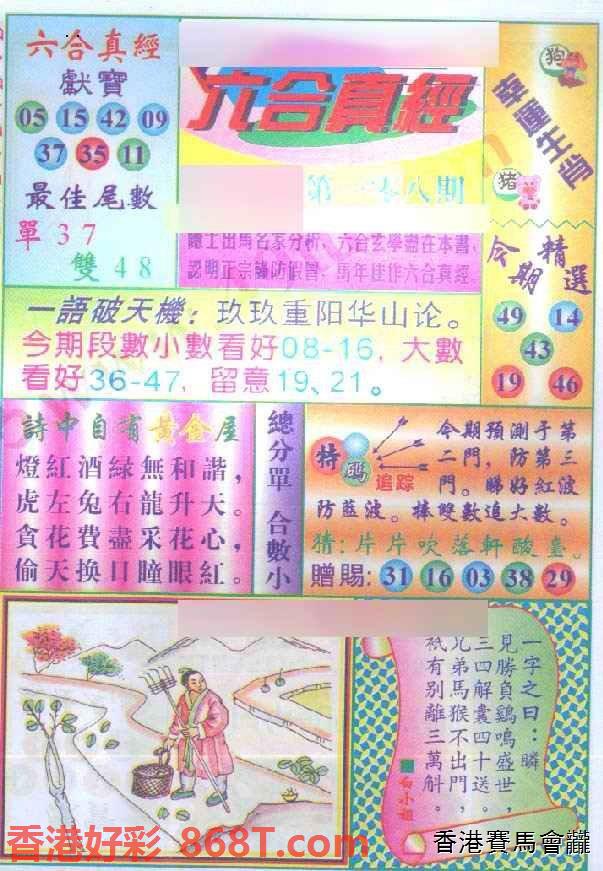 六合真經
獻寶
05 15 42 09
37 35 11
最佳尾數
單37
雙48
六合真經
第一零八期
認明正宗謹防假冒、馬年佳作六合真經
狗
幸運生肖
猪
今期精選
49 14
43
19 46
一語破天機：玖玖重阳华山论。
今期段數小數看好08-16，大數
看好36-47，留意19、21。
詩中自有黃金屋
燈紅酒緑無和諧，
虎左兔右龍升天。
貪花費盡采花心，
偷天換日瞳眼紅。
總分單
合數小
特碼
追踪
今期預測于第
二門，防第三
門。睇好紅波
防藍波。捧雙數追大數。
猜：片片吹落軒酸臺。
贈賜：31 16 03 38 29
一字之曰：瞵
見勝負鷄鳴盛世，
三四解囊四十送。
兄弟馬猴不出門，
祇有别離三萬斛。
白小姐
香港好彩 868T.com
香港賽馬會